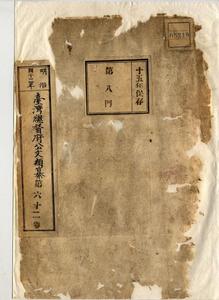 十五年保存
第八門
明治
四十二年
臺灣總督府公文類纂第六十二卷